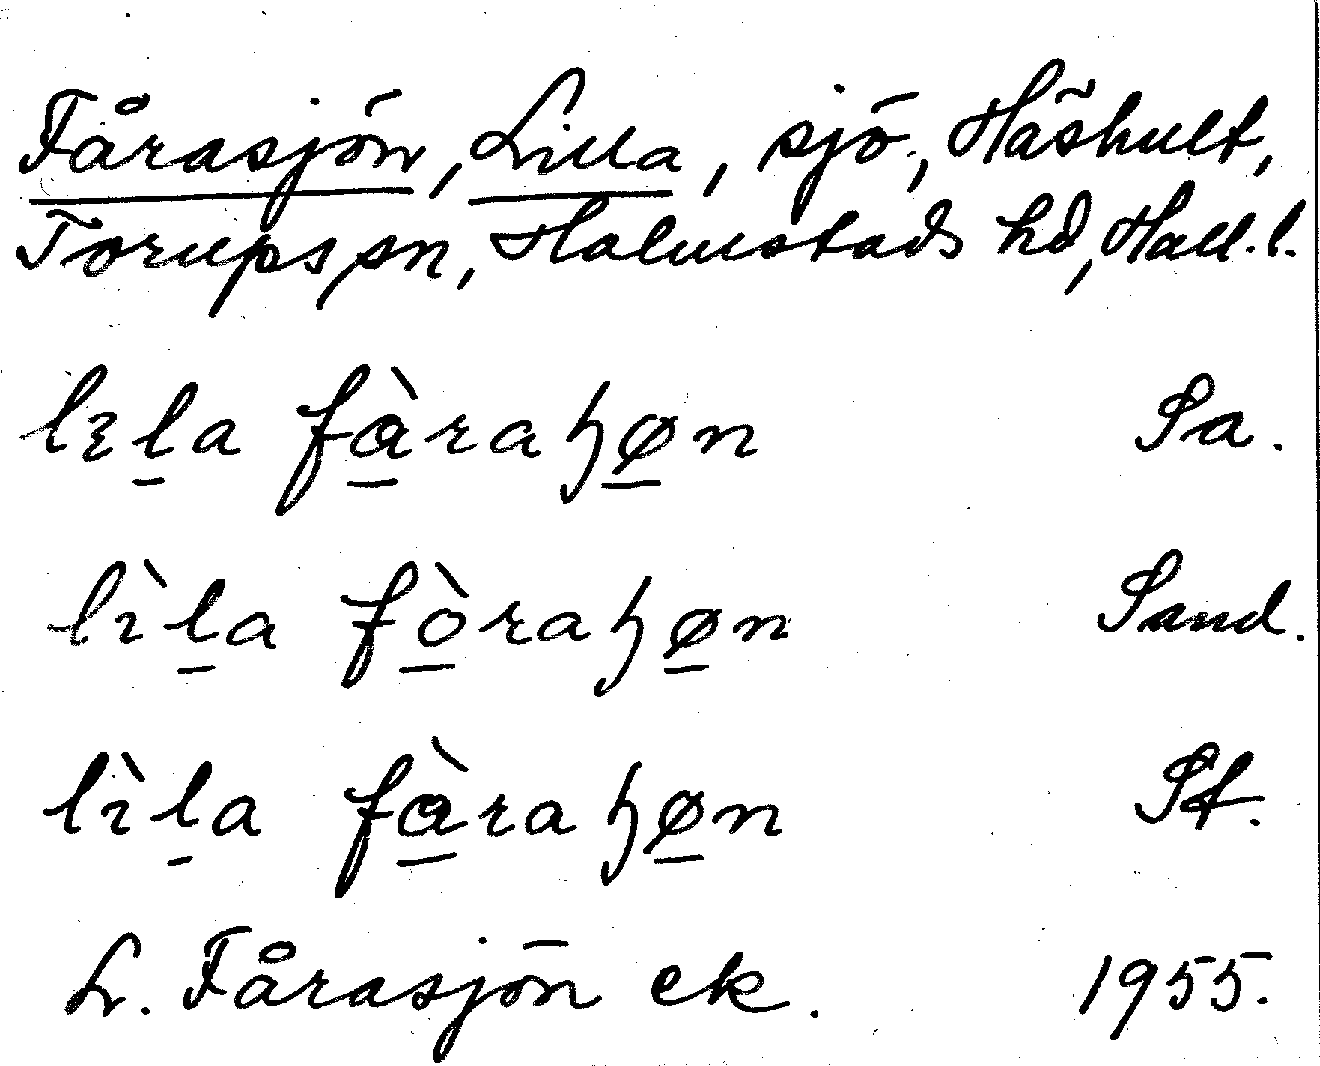 Fårasjön, Lilla, sjö, Häshult,
Torups sn, Halmstads hd, Hall. l.
lɛla fàrahøn Sa.
lìla fòrahøn Sand.
lìla fàrahøn Sf.
L. Fårasjön ek. 1955.